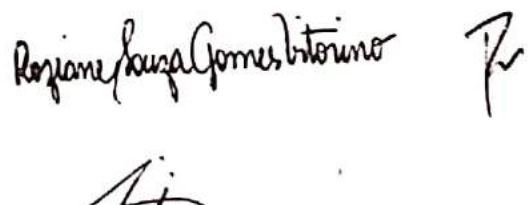 Roziane Souza Gomes Vitorino